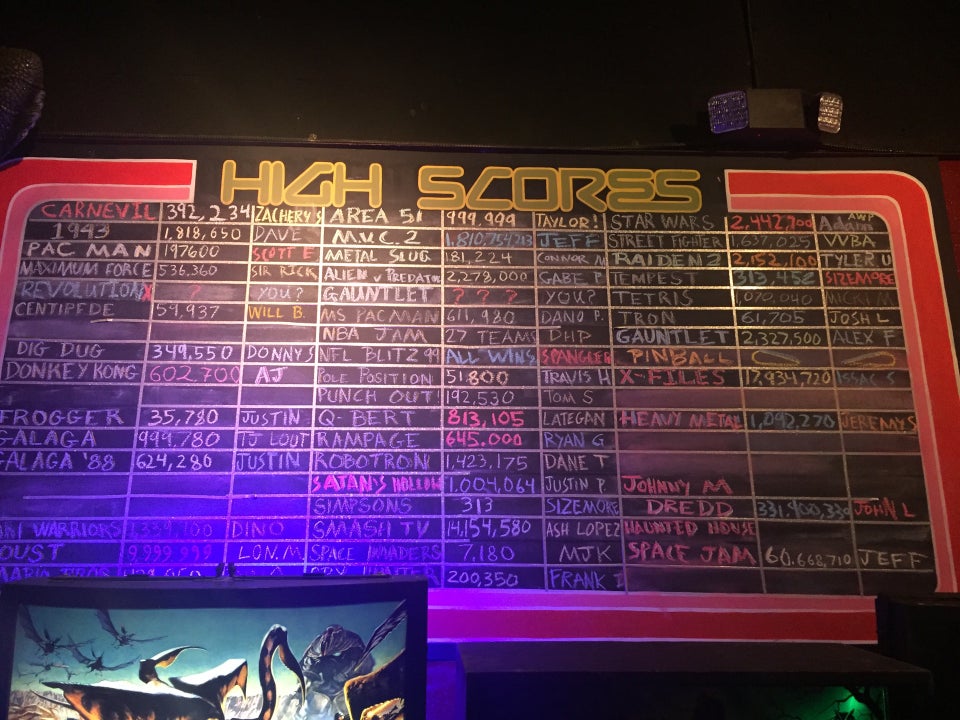 HIGH SCORES
CARNEVIL 392,234 ZACHERY S AREA 51 999,999 TAYLOR! STAR WARS 2,442,900 Adams AWP
1943 1,818,650 DAVE M.V.C. 2 1,810,754,213 JEFF STREET FIGHTER 1,637,025 VVBA
PAC MAN 197600 SCOTT E METAL SLUG 181,224 CONNOR M RAIDEN 2 2,152,100 TYLER U
MAXIMUM FORCE 536,360 SIR RICK ALIEN v PREDATOR 2,278,000 GABE P TEMPEST SIZEMORE
REVOLUTION X ? YOU? GAUNTLET ? ? ? YOU? TETRIS
CENTIPEDE 59,937 WILL B. MS PACMAN 611,980 DANO P. TRON 61,705 JOSH L
NBA JAM 27 TEAMS DHP GAUNTLET 2,327,500 ALEX F
DIG DUG 349,550 DONNY S NFL BLITZ 99 ALL WINS SPANGLER PINBALL
DONKEY KONG 602,700 AJ POLE POSITION 51800 TRAVIS H X-FILES ISSAC S
PUNCH OUT! 192,530 TOM S
FROGGER 35,780 JUSTIN Q-BERT 813,105 LATEGAN HEAVY METAL 1,092,270 JEREMY S
GALAGA 999,780 TJ LOUT RAMPAGE 645,000 RYAN G
GALAGA '88 624,280 JUSTIN ROBOTRON 1,423,175 DANE T
SATAN'S HOLLOW 1,004,064 JUSTIN P. JOHNNY M
SIMPSONS 313 SIZEMORE DREDD 331,400,330 JOHN L
WARRIORS DINO SMASH TV 14,154,580 ASH LOPEZ HAUNTED HOUSE
OUST 9,999,999 LON.M SPACE INVADERS 7,180 MJK SPACE JAM 60,668,710 JEFF
200,350 FRANK